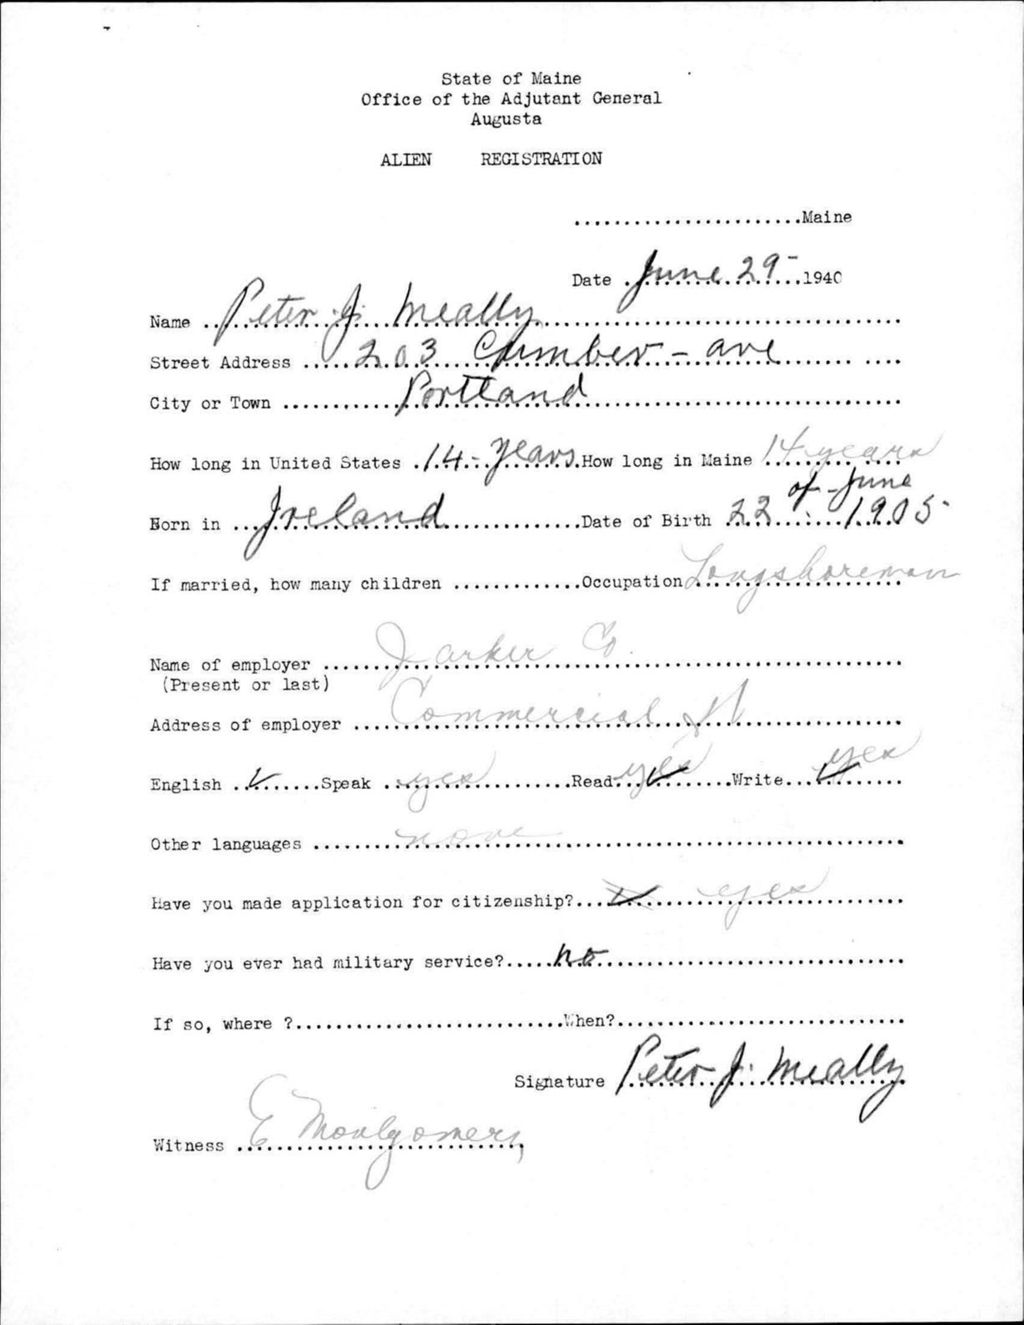 State of Maine
Office of the Adjutant General
Augusta
ALIEN REGISTRATION
.......................Maine
Date June 29 1940
Name Peter J. Meally
Street Address 203 Cumber - ave
City or Town Portland
How long in United States 14 - years How long in Maine 14 years
Born in Ireland Date of Birth 22 of - June 1905
If married, how many children .............Occupation Longshoreman
Name of employer Jarker Co.
(Present or last)
Address of employer Commercial St
English ✓ Speak yes Read yes ✓ Write yes ✓
Other languages none
Have you made application for citizenship? ✓ yes
Have you ever had military service? no
If so, where ?...........................When?.............................
Signature Peter J. Meally
Witness E Montgomery